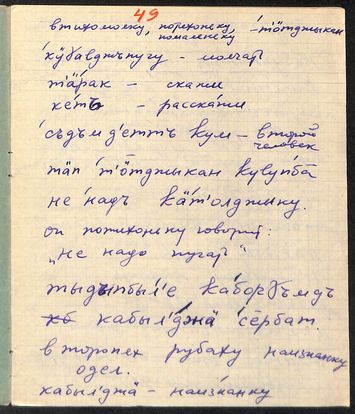 49
втихомолку, потихоньку, помаленьку – т'ö́тджыкан
кӱ́бавджъпугу – молчат
тӓ́рак – скажи
ке́тъ – расскажи
съдъм д'еттъ кум – второй человек
тӓп т'ö́тджыкан кувуп̄ба
не на́дъ кӓт'олджыку.
он потихоньку говорит:
„не надо пугат"
тыдъ́пбыл'е ка́боргъмдъ
кабыл'джӓ се́рбат.
в торопях рубаху наизнанку одел.
кабыл'джӓ – наизнанку